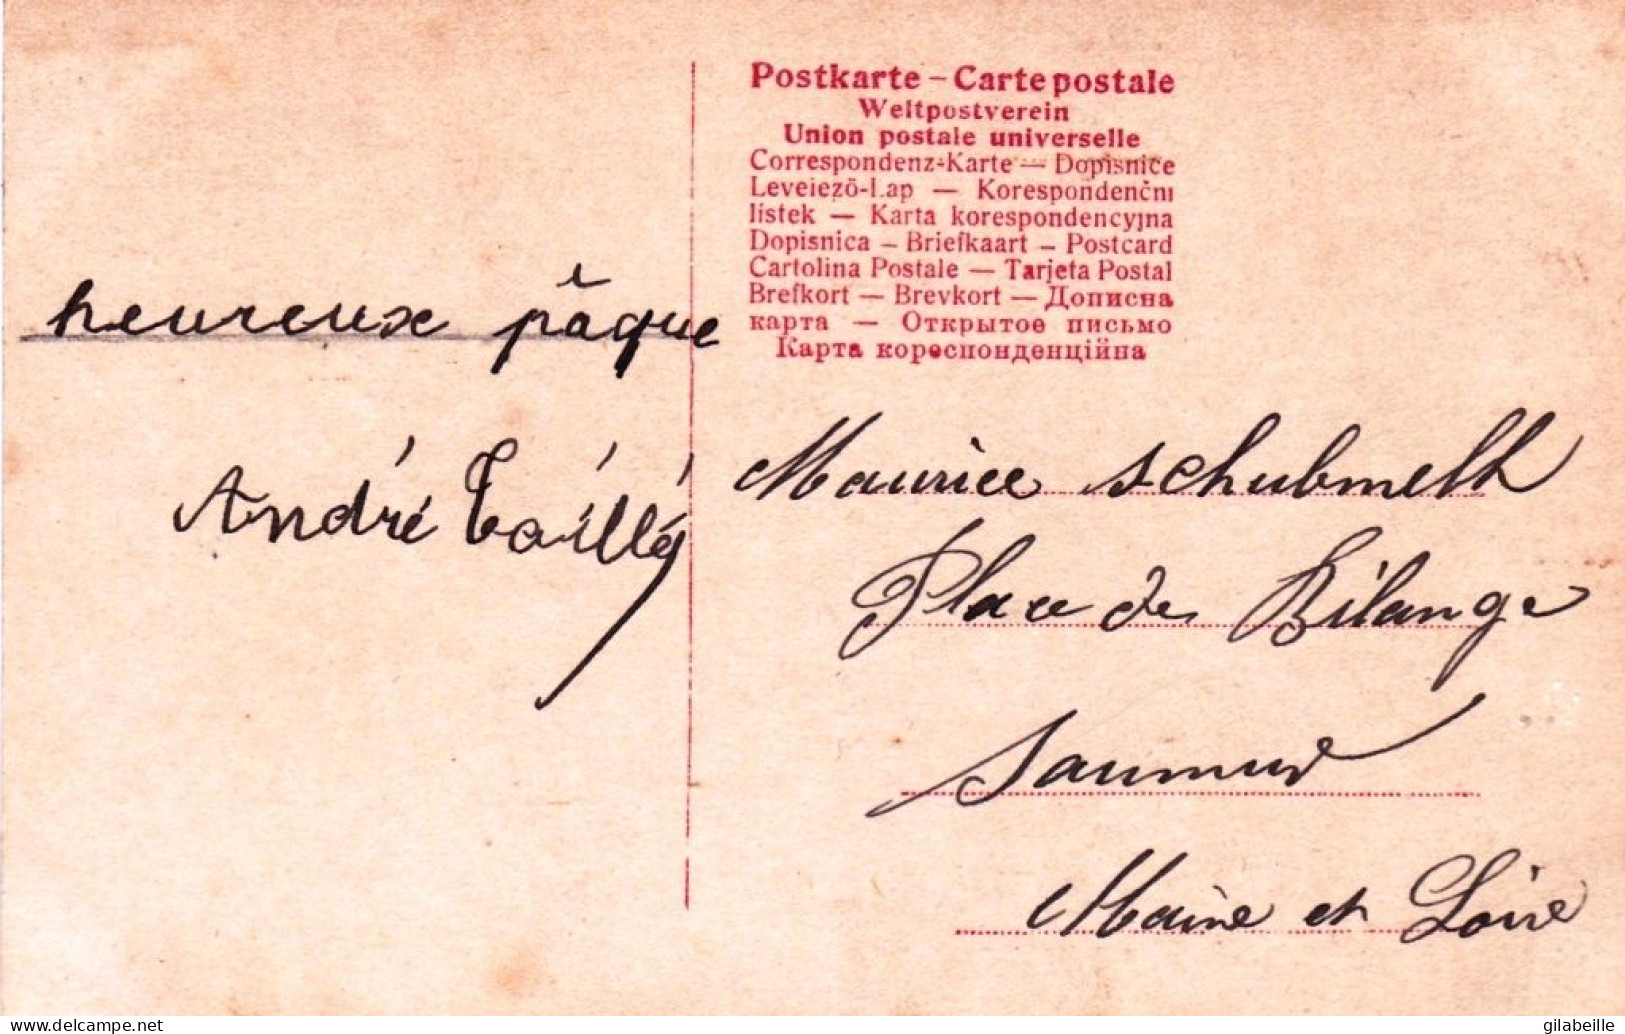 Postkarte – Carte postale
Weltpostverein
Union postale universelle
Correspondenz-Karte — Dopisnice
Leveiezö-Lap — Korespondenčni
listek — Karta korespondencyjna
Dopisnica – Briefkaart – Postcard
Cartolina Postale — Tarjeta Postal
Brefkort — Brevkort — Дописна
карта — Открытое письмо
Карта кореспонденційна
heureux pâque
André Taillé
Maurice schubmelh
Place de Bilange
Saumur
Maine et Loire
www.delcampe.net
gilabeille